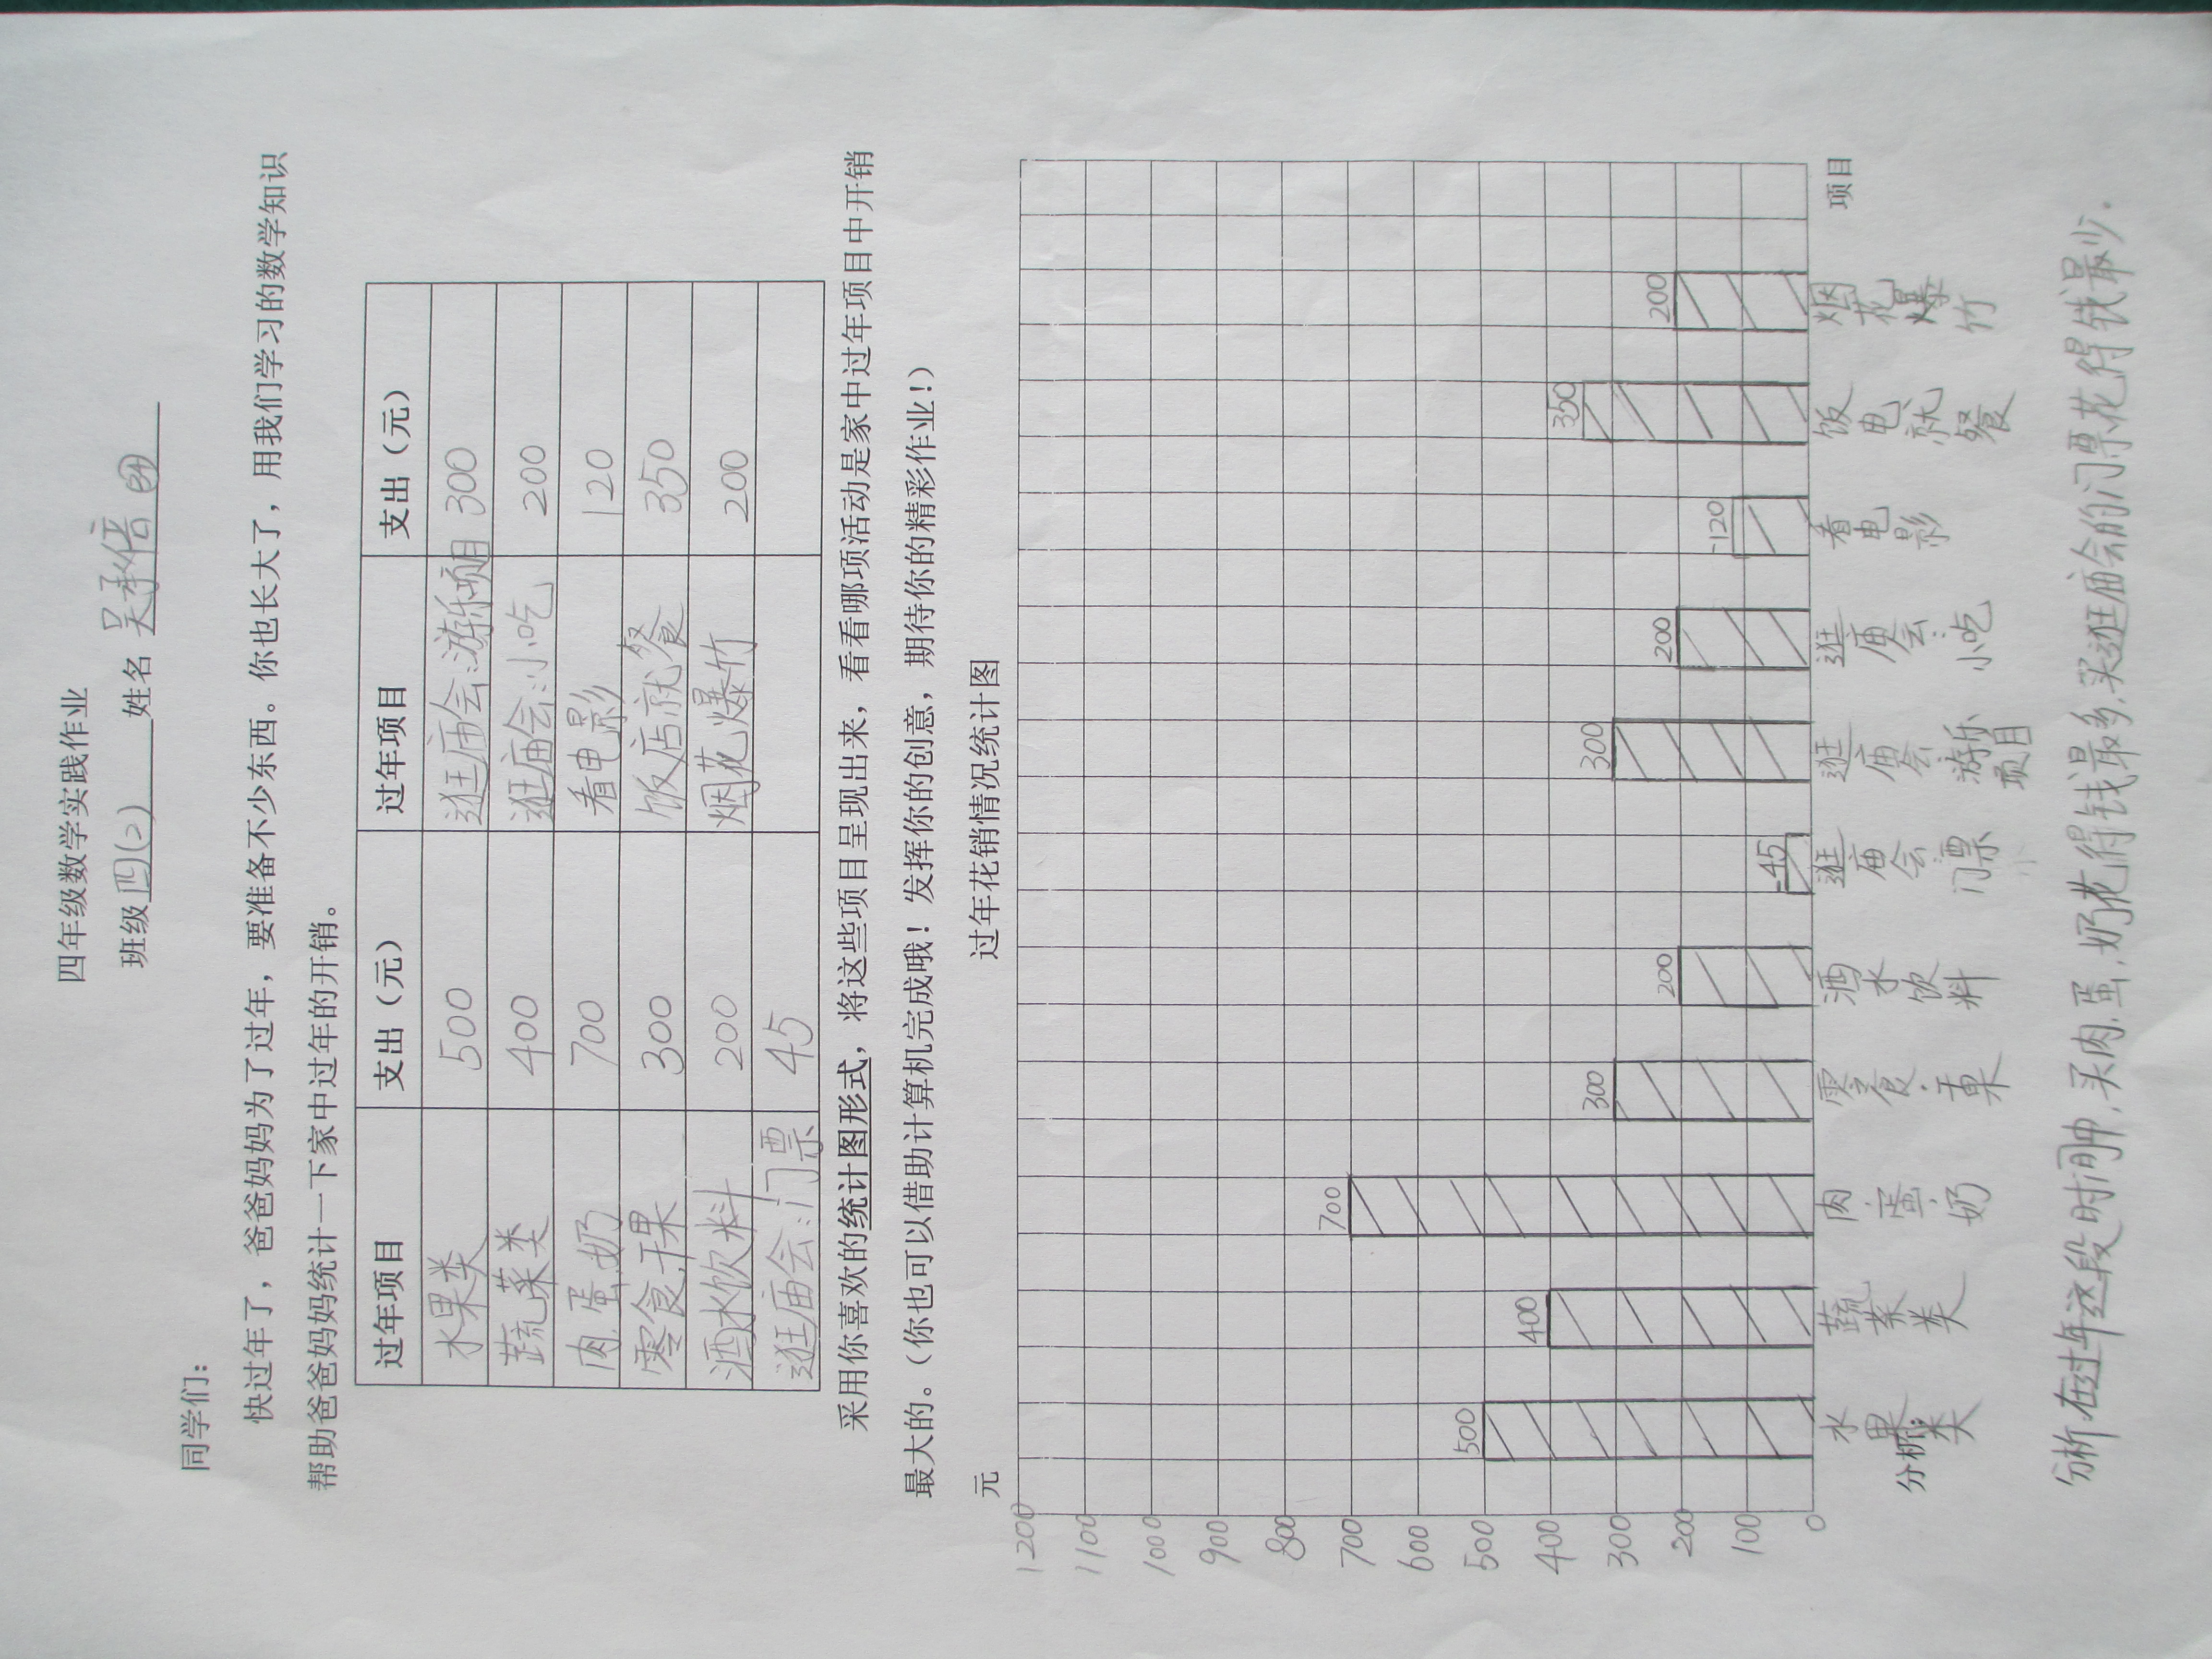 四年级数学实践作业
班级 四(2) 姓名 吴承倍
同学们：
快过年了，爸爸妈妈为了过年，要准备不少东西。你也长大了，用我们学习的数学知识
帮助爸爸妈妈统计一下家中过年的开销。
过年项目 支出（元） 过年项目 支出（元）
水果类 500 逛庙会:游乐项目 300
蔬菜类 400 逛庙会:小吃 200
肉.蛋.奶 700 看电影 120
零食.干果 300 饭店就餐 350
酒水饮料 200 烟花爆竹 200
逛庙会:门票 45
采用你喜欢的统计图形式，将这些项目呈现出来，看看哪项活动是家中过年项目中开销
最大的。（你也可以借助计算机完成哦！发挥你的创意，期待你的精彩作业！）
过年花销情况统计图
元
1200
1100
1000
900
800
700
600
500
400
300
200
100
0
500 400 700 300 200 45 300 200 120 350 200
水果类 蔬菜类 肉.蛋.奶 零食.干果 酒水饮料 逛庙会门票 逛庙会游乐项目 逛庙会小吃 看电影 饭电就餐 烟花爆竹 项目
分析：
分析:在过年这段时间中,买肉.蛋.奶花得钱最多,买逛庙会的门票花得钱最少.